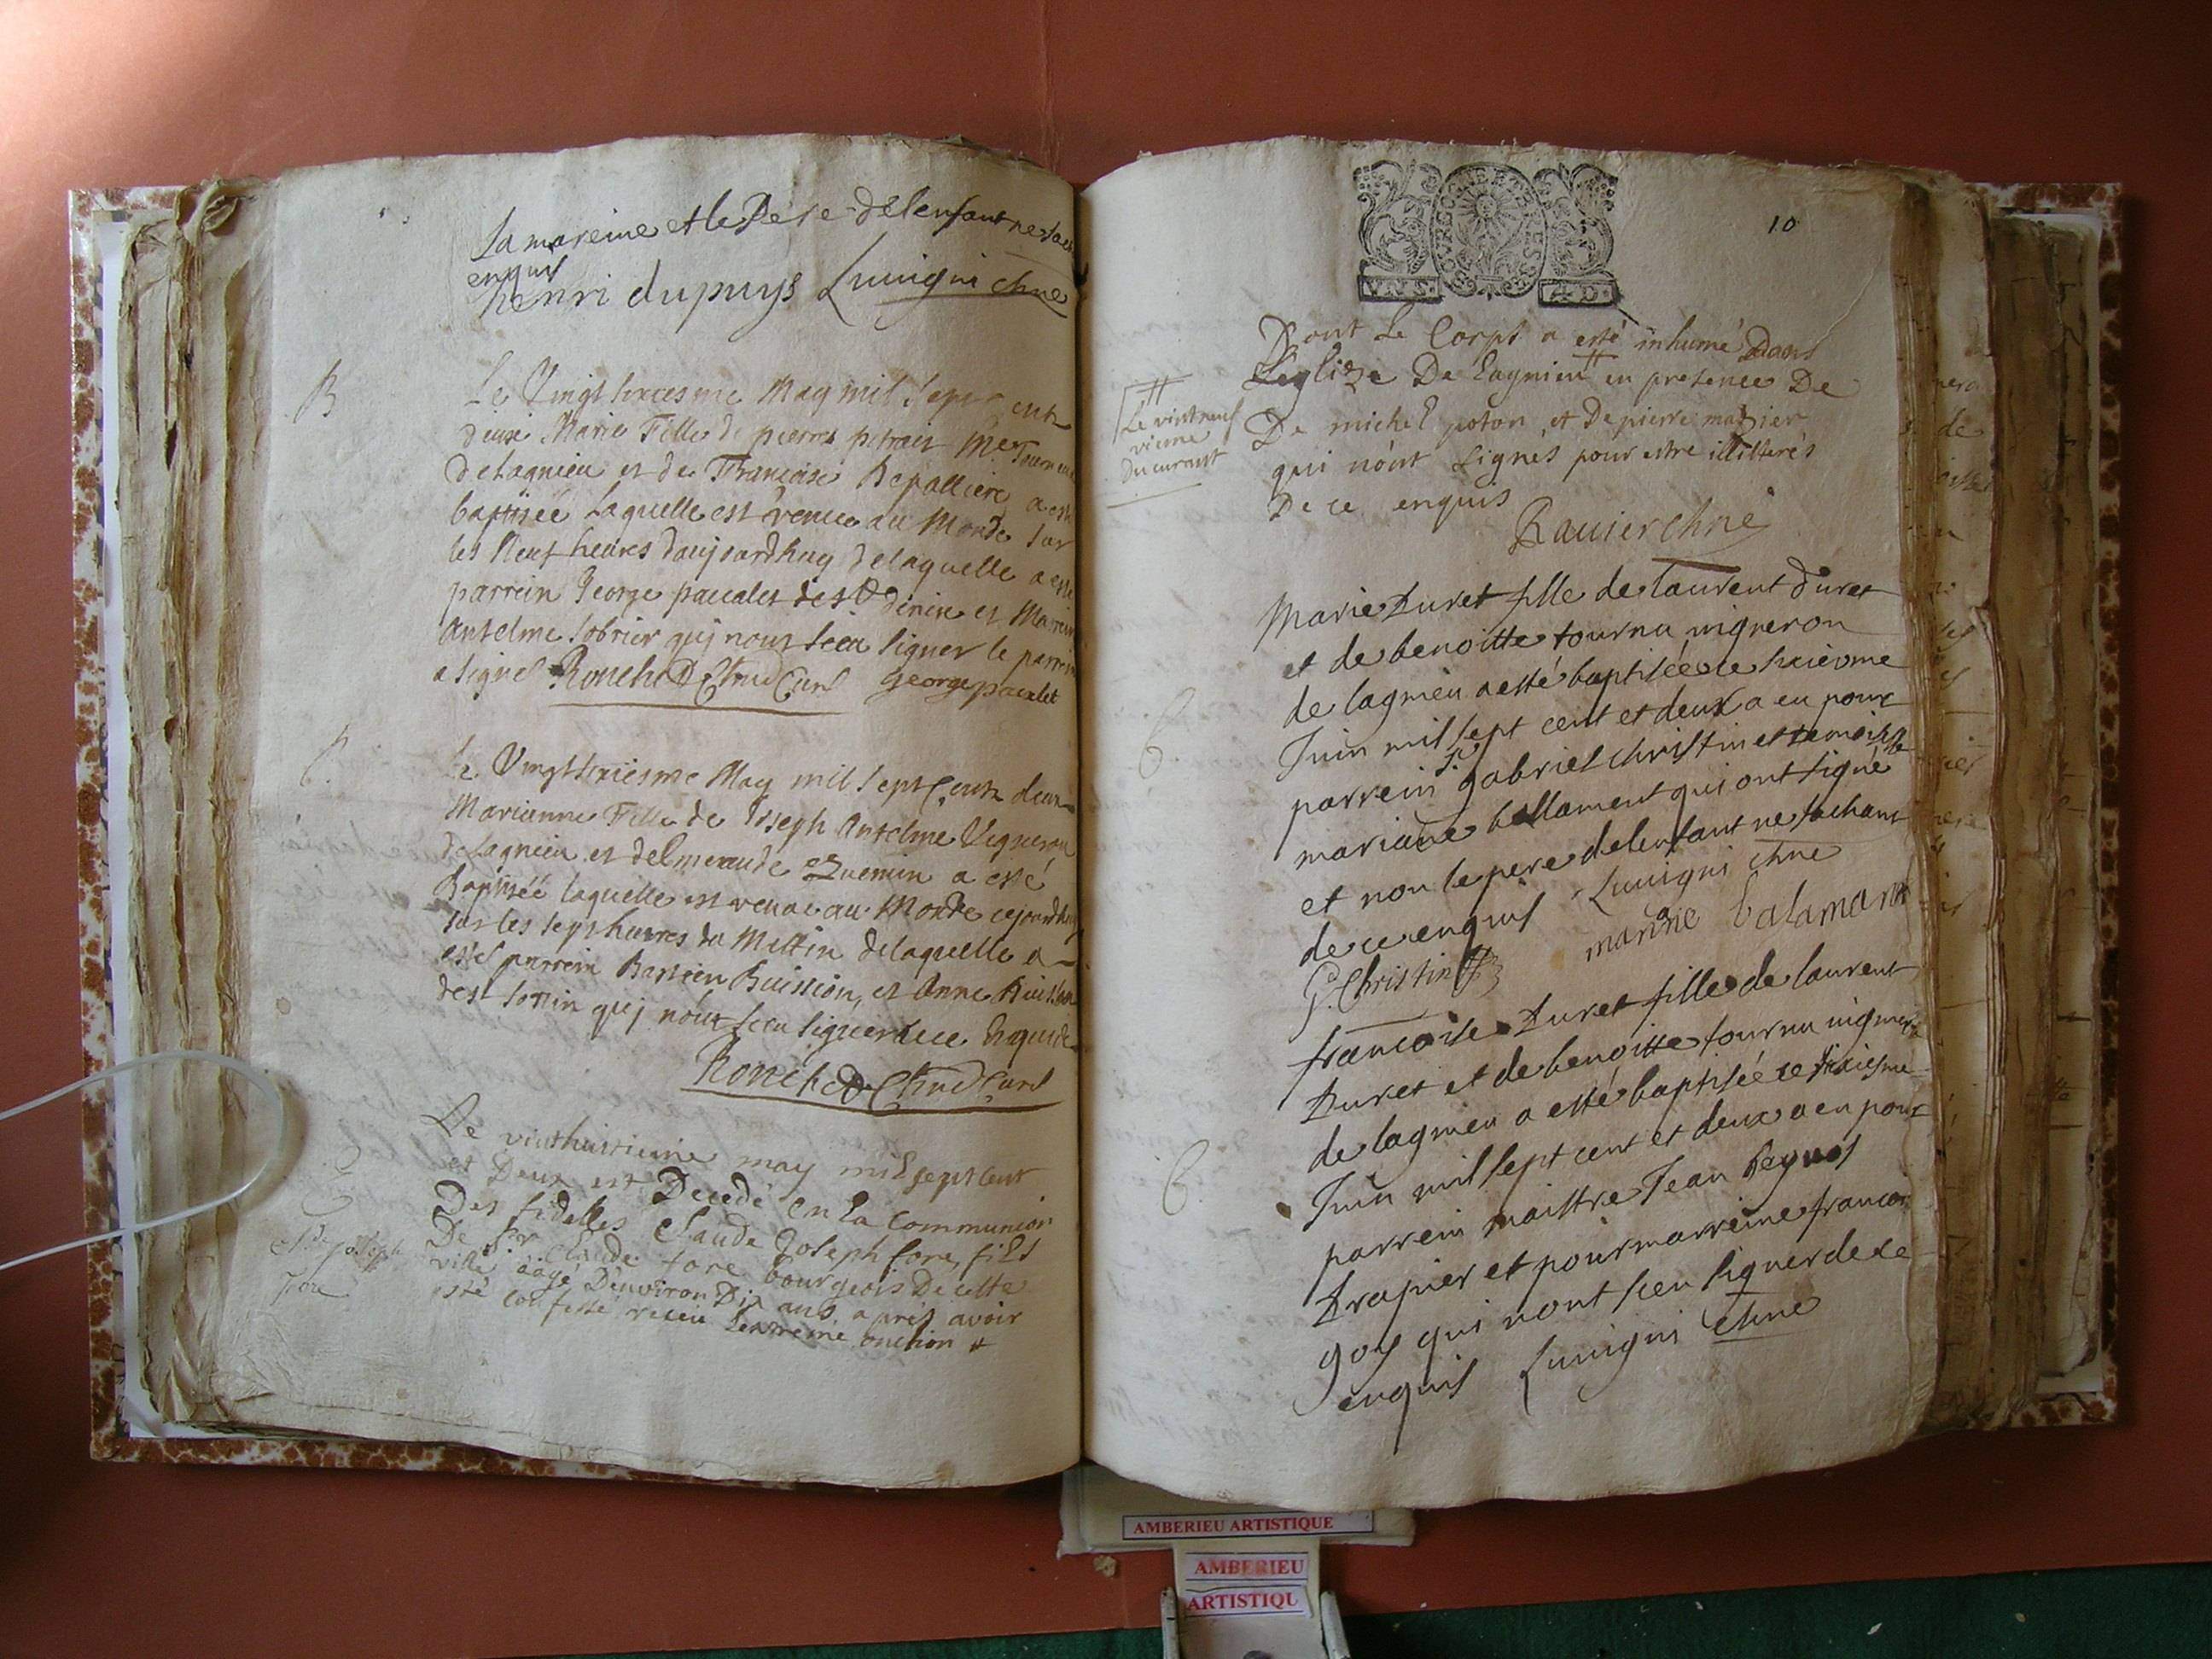 la mareine et le Pere de lenfant ne
enquis
henri dupuys Luuigni chne
B
Le Vingt sixiesme May mil sept cent
deux Marie Fille de pierre petrait Me
de Lagnieu et de Francoise Bepalliere a esté
baptisée Laquelle est venue au Monde sur
les Neuf heures daujourdhuy delaquelle a esté
parrein George pacalet de St denis et Marreine
Antelme sobrier quj nont sceu signer le parrein
a signé Ronchet Curé George pacalet
B
le Vingtsixiesme May mil sept Cents deux
Marianne Fille de Joseph Antelme Vigneron
de Lagnieu et de Emeraude Quemin a esté
Baptisée laquelle est venue au Monde cejourdhuy
sur les sept heures du Mattin delaquelle a
esté parrein Bastien Buission, et Anne
de st sorlin quj nont sceu signer de ce Enquis
Ronchet Curé
Le vinthuittieme may mil sept cent
et Deux est Decedé en La Communion
Des fidelles Claude Joseph fore, fils
De Sr. Claude fore bourgeois De cette
ville aagé Denviron Dix ans apres avoir
esté confessé receu Lextreme onction et
Cl.de Joseph
fore
10
VNS. 4 D.
Dont Le Corps a esté inhumé Dans
Leglize De Lagnieu # en presence De
De michel poton, et De pierre matier
qui n'ont signés pour estre illitterés
De ce enquis
Rauier chne
#
Le vintneuf
vieme
Du courant
B.
Marie Duret fille de laurent duret
et de benoitte tournu uigneron
de lagnieu a esté baptisée ce sixiesme
Juin mil sept cent et deux a eu pour
parrein Sr gabriel christin et demoiselle
mariane ballament qui ont signé
et non le pere delenfant ne sachant
de ce enquis Luuigni chne
G. Christin marine balamant
B.
francoise Duret fille de laurent
Duret et de benoitte tournu uigneron
de lagnieu a esté baptisée ce sixiesme
Juin mil sept cent et deux a eu pour
parrein maistre Jean Reynos
Drapier et pour marreine francoise
goy qui nont sceu signer de ce
enquis Luuigni chne
AMBERIEU ARTISTIQUE
AMBERIEU
ARTISTIQU